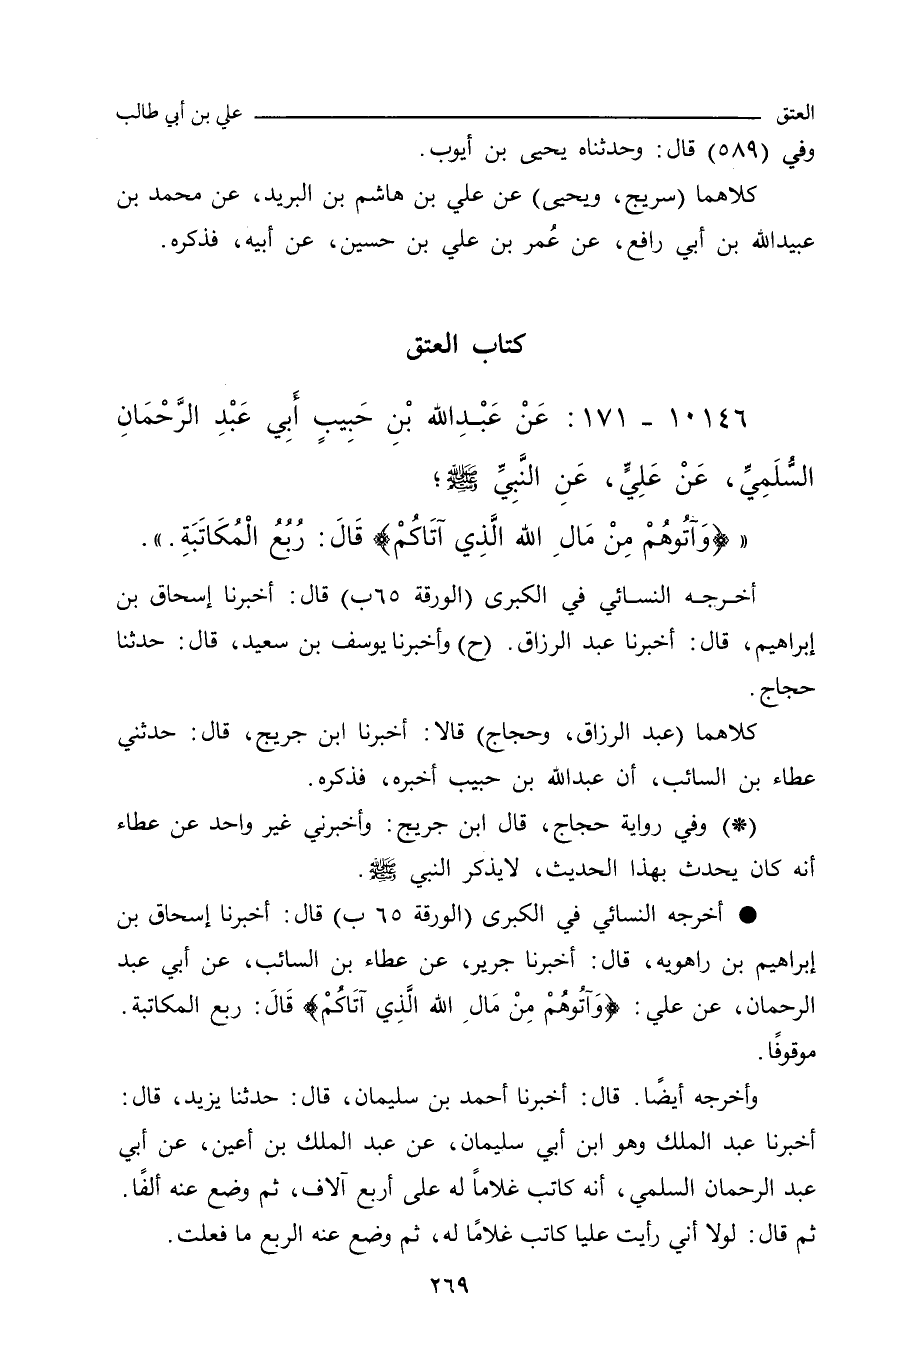 العتق ــــــــــ علي بن أبي طالب
وفي (٥٨٩) قال: وحدثناه يحيى بن أيوب.
كلاهما (سريج، ويحيى) عن علي بن هاشم بن البريد، عن محمد بن
عبيدالله بن أبي رافع، عن عُمر بن علي بن حسين، عن أبيه، فذكره.
كتاب العتق
١٠١٤٦ - ١٧١: عَنْ عَبْدِالله بْنِ حَبِيبٍ أَبِي عَبْدِ الرَّحْمَانِ
السُّلَمِيِّ، عَنْ عَلِيٍّ، عَنِ النَّبِيِّ ﷺ؛
« ﴿وَآتُوهُمْ مِنْ مَالِ الله الَّذِي آتَاكُمْ﴾ قَالَ: رُبُعُ الْمُكَاتَبَةِ.».
أخرجه النسائي في الكبرى (الورقة ٦٥ب) قال: أخبرنا إسحاق بن
إبراهيم، قال: أخبرنا عبد الرزاق. (ح) وأخبرنا يوسف بن سعيد، قال: حدثنا
حجاج.
كلاهما (عبد الرزاق، وحجاج) قالا: أخبرنا ابن جريج، قال: حدثني
عطاء بن السائب، أن عبدالله بن حبيب أخبره، فذكره.
(*) وفي رواية حجاج، قال ابن جريج: وأخبرني غير واحد عن عطاء
أنه كان يحدث بهذا الحديث، لايذكر النبي ﷺ.
● أخرجه النسائي في الكبرى (الورقة ٦٥ ب) قال: أخبرنا إسحاق بن
إبراهيم بن راهويه، قال: أخبرنا جرير، عن عطاء بن السائب، عن أبي عبد
الرحمان، عن علي: ﴿وَآتُوهُمْ مِنْ مَالِ الله الَّذِي آتَاكُمْ﴾ قَالَ: ربع المكاتبة.
موقوفًا.
وأخرجه أيضًا. قال: أخبرنا أحمد بن سليمان، قال: حدثنا يزيد، قال:
أخبرنا عبد الملك وهو ابن أبي سليمان، عن عبد الملك بن أعين، عن أبي
عبد الرحمان السلمي، أنه كاتب غلاماً له على أربع آلاف، ثم وضع عنه ألفًا.
ثم قال: لولا أني رأيت عليا كاتب غلامًا له، ثم وضع عنه الربع ما فعلت.
٢٦٩